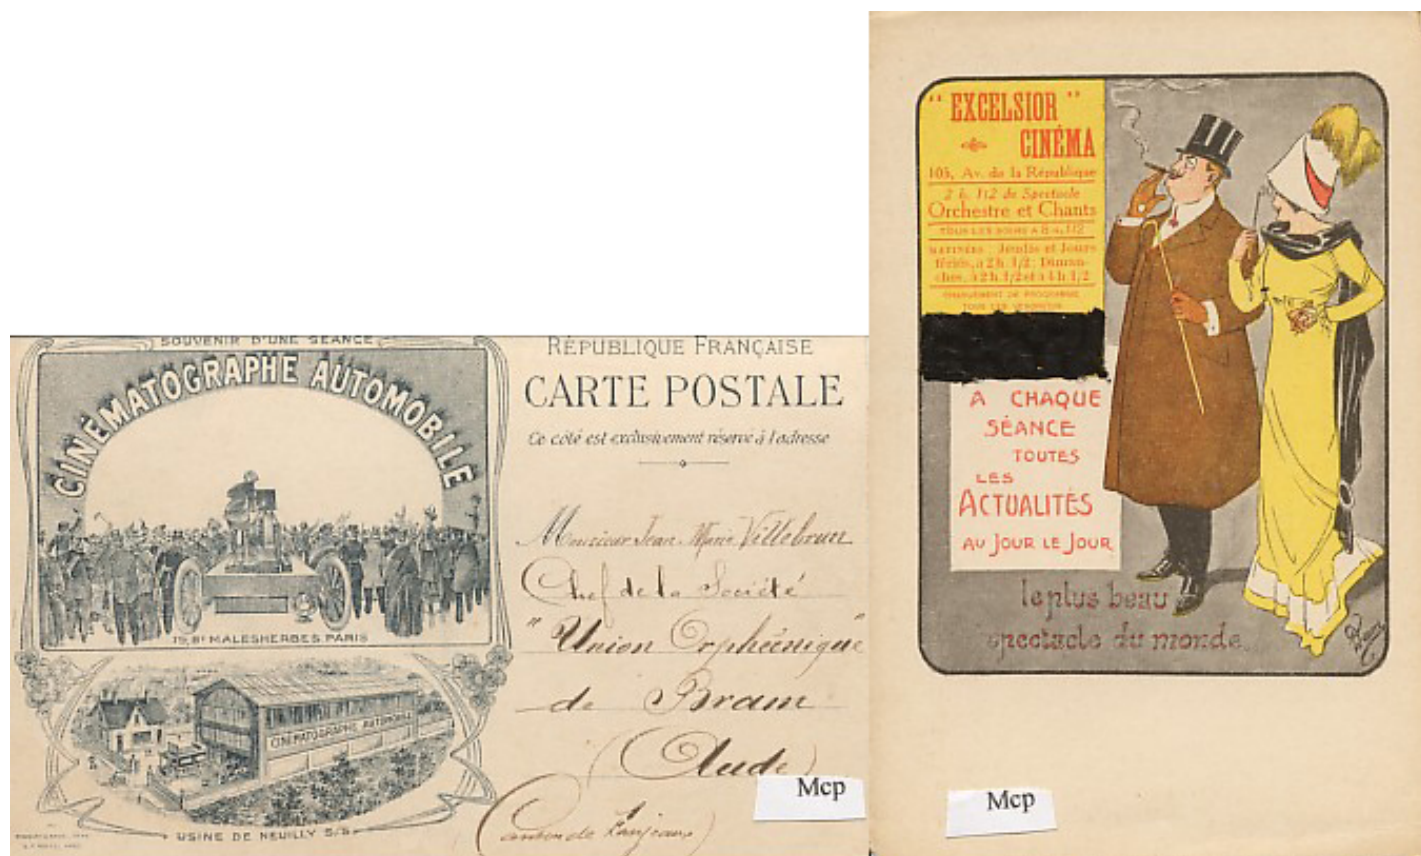 SOUVENIR D'UNE SÉANCE
CINÉMATOGRAPHE AUTOMOBILE
19, Bd MALESHERBES PARIS
CINÉMATOGRAPHE AUTOMOBILE
USINE DE NEUILLY S/S
RÉPUBLIQUE FRANÇAISE
CARTE POSTALE
Ce côté est exclusivement réservé à l'adresse
Monsieur Jean Marie Villebrun
Chef de la Société
"Union Orphéonique"
de Bram
(Aude)
(canton de Fanjeaux)
Mcp
"EXCELSIOR"
CINÉMA
105, Av. de la République
2 h. 1/2 de Spectacle
Orchestre et Chants
TOUS LES SOIRS A 8 h. 1/2
MATINÉES : Jeudis et Jours
fériés, à 2 h. 1/2 ; Diman-
ches, à 2 h. 1/2 et à 4 h. 1/2
CHANGEMENT DE PROGRAMME
TOUS LES VENDREDIS
A CHAQUE
SÉANCE
TOUTES
LES
ACTUALITÉS
AU JOUR LE JOUR
le plus beau
spectacle du monde.
Mcp